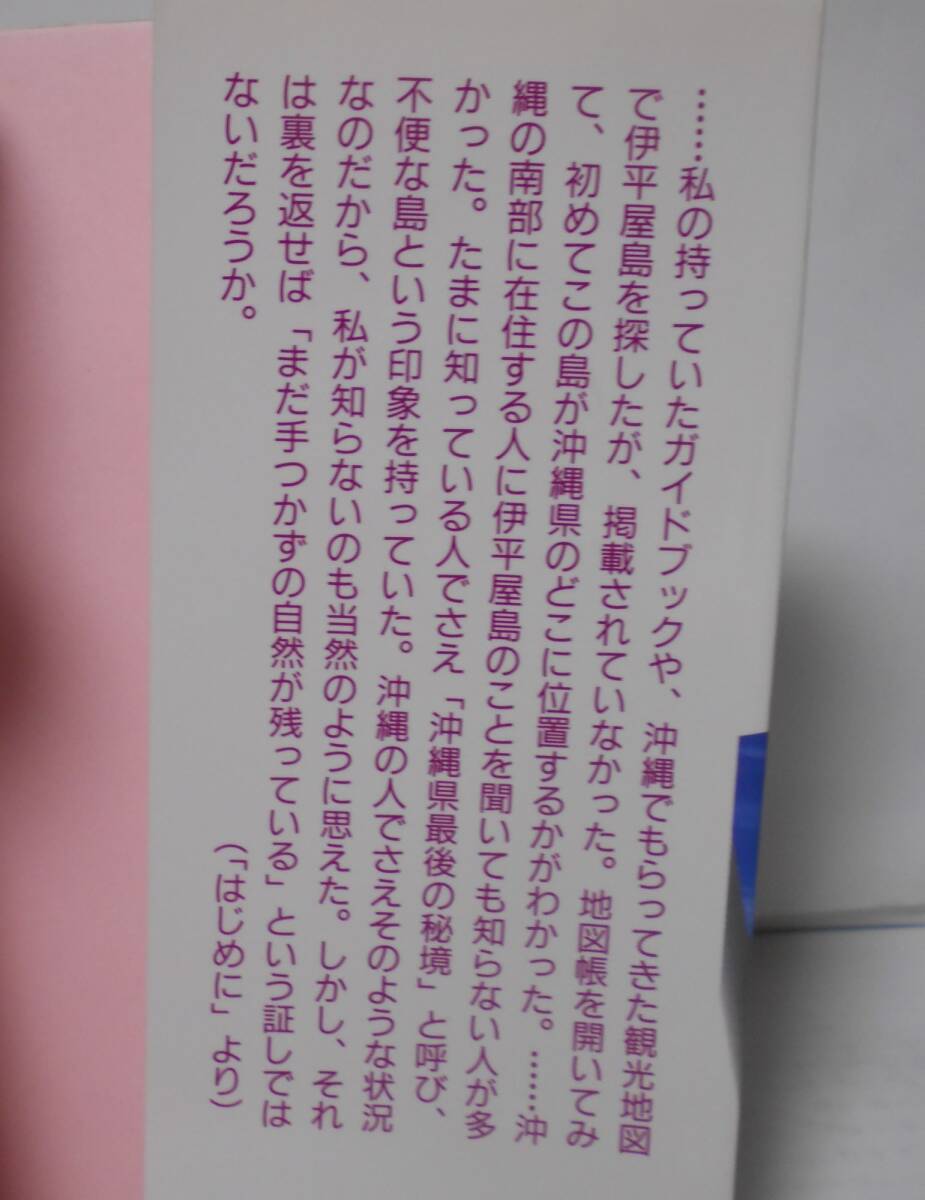 ……私の持っていたガイドブックや、沖縄でもらってきた観光地図
で伊平屋島を探したが、掲載されていなかった。地図帳を開いてみ
て、初めてこの島が沖縄県のどこに位置するかがわかった。……沖
縄の南部に在住する人に伊平屋島のことを聞いても知らない人が多
かった。たまに知っている人でさえ「沖縄県最後の秘境」と呼び、
不便な島という印象を持っていた。沖縄の人でさえそのような状況
なのだから、私が知らないのも当然のように思えた。しかし、それ
は裏を返せば「まだ手つかずの自然が残っている」という証しでは
ないだろうか。
（「はじめに」より）